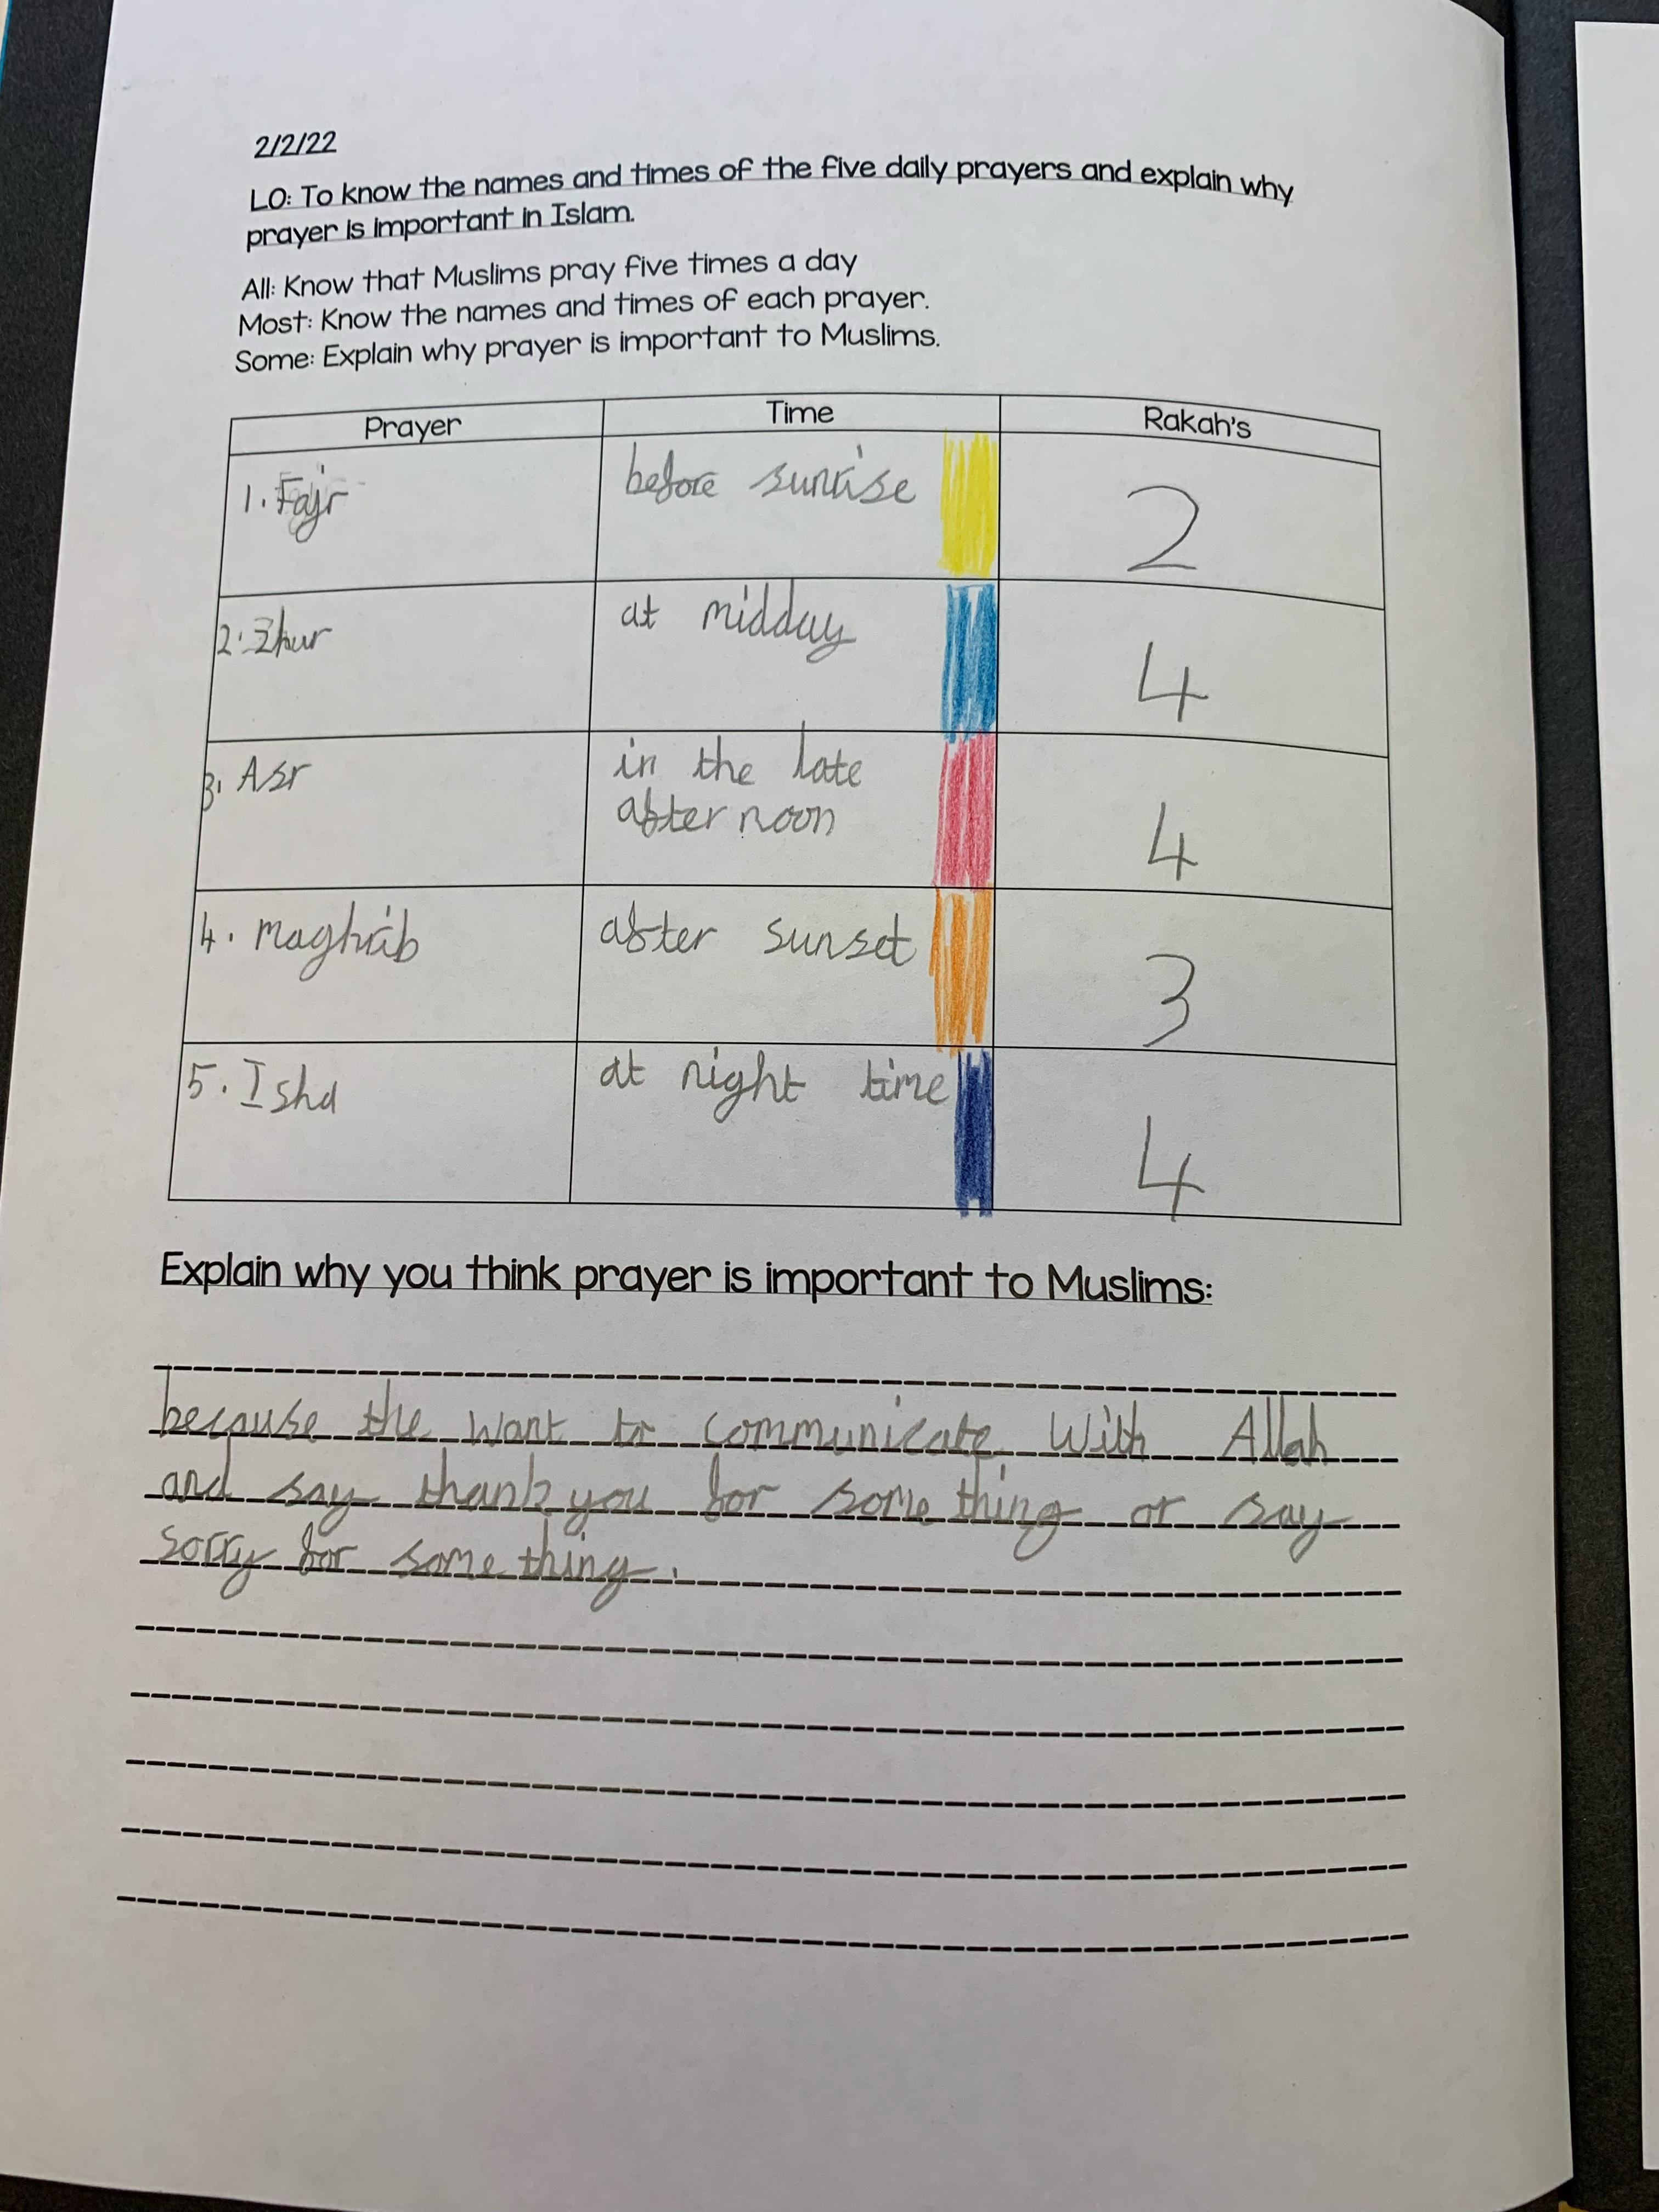 2/2/22
LO: To know the names and times of the five daily prayers and explain why
prayer is important in Islam.
All: Know that Muslims pray five times a day
Most: Know the names and times of each prayer.
Some: Explain why prayer is important to Muslims.
Prayer Time Rakah's
1. Fajr before sunrise 2
2. Zhur at midday 4
3. Asr in the late
after noon 4
4. maghrib after sunset 3
5. Isha at night time 4
Explain why you think prayer is important to Muslims:
because the want to communicate with Allah
and say thank you for some thing or say
sorry for some thing.